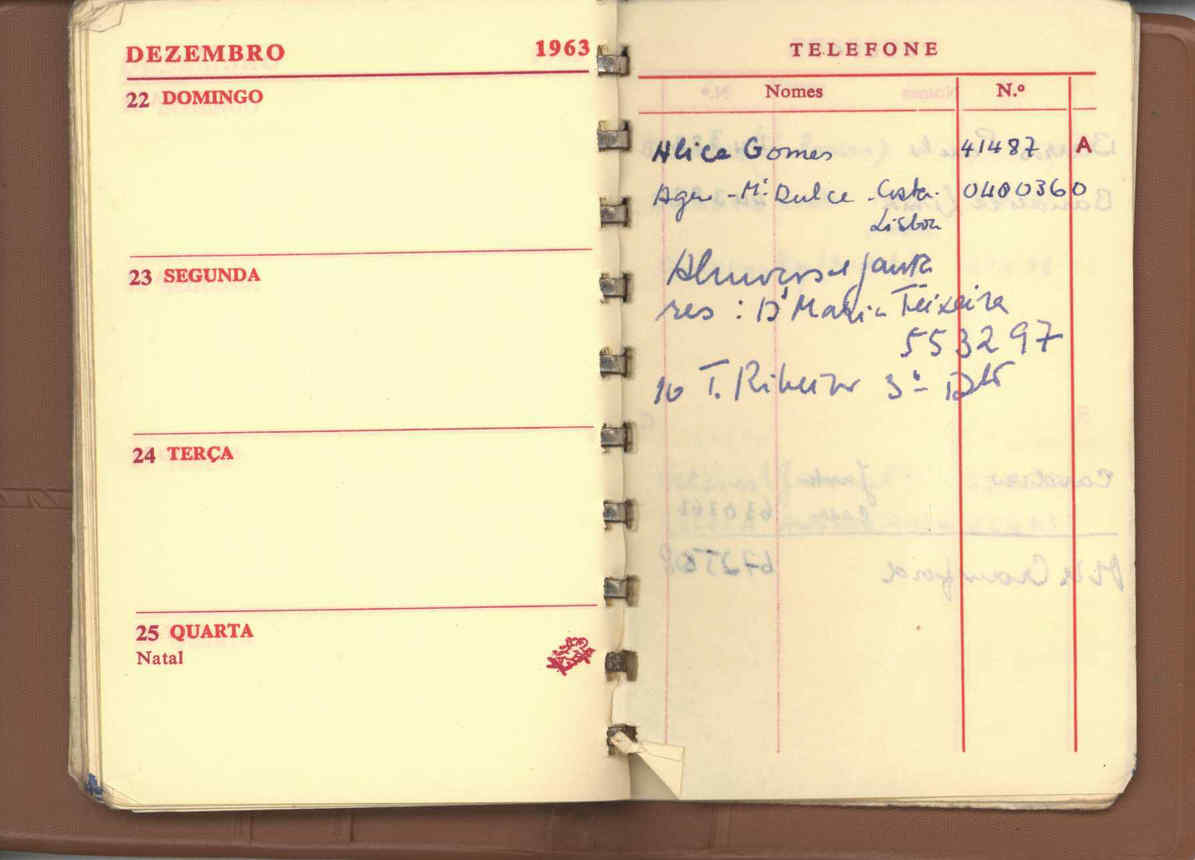 DEZEMBRO 1963
22 DOMINGO
23 SEGUNDA
24 TERÇA
25 QUARTA
Natal
TELEFONE
Nomes N.º
Alice Gomes 41487 A
Mª Dulce Costa 0480360
Lisboa
res : Dª Maria Teixeira
553297
10 T. Ribeiro 3º Dtº